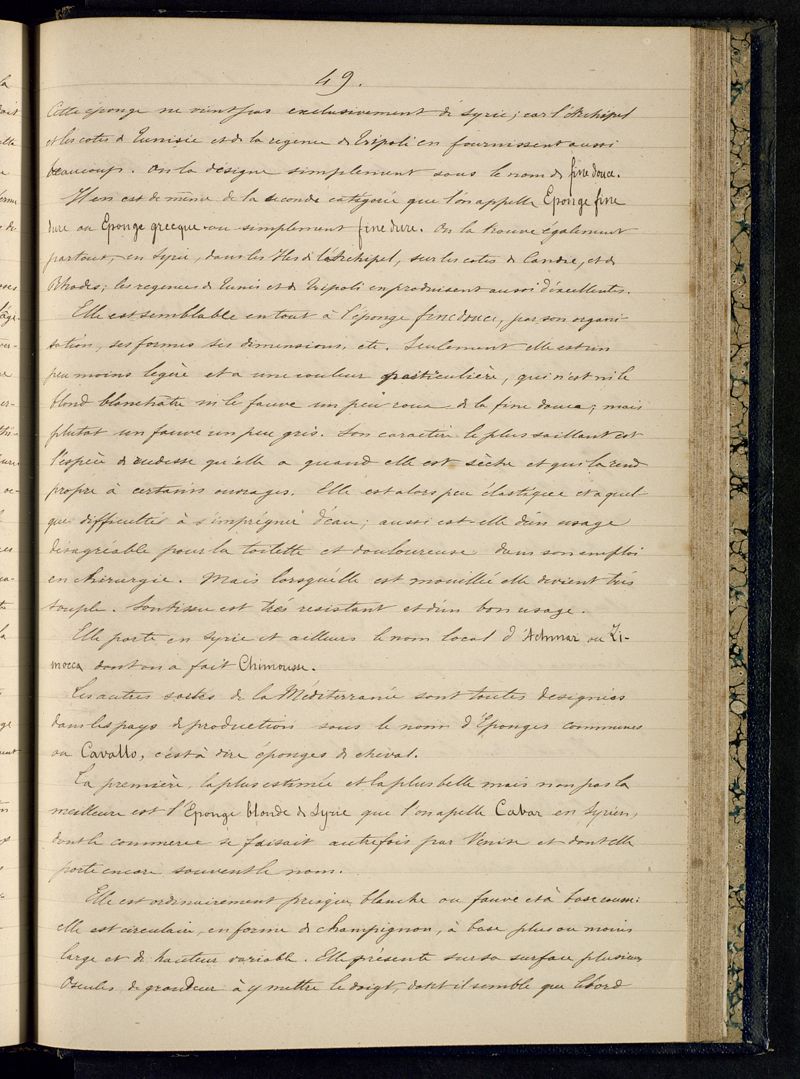 49.
Cette éponge ne vient pas exclusivement de Syrie; car l'Archipel
et les cotes de Tunisie et de la regence de Tripoli en fournissent aussi
beaucoup. On la désigne simplement sous le nom de fine douce.
Il en est de même de la seconde catégorie que l'on appelle Eponge fine
dure ou Eponge grecque ou simplement fine dure. On la trouve également
partout, en Syrie, dans les Iles de l'Archipel, sur les cotes de Candie, et de
Rhodes; les regences de Tunis et de Tripoli en produisent aussi d'excellentes.
Elle est semblable en tout à l'éponge fine douce, par son organi-
sation, ses formes ses dimensions, etc. Seulement elle est un
peu moins legère et a une couleur particulière, qui n'est ni le
blond blanchâtre ni le fauve un peu roux de la fine douce; mais
plutot un fauve un peu gris. Son caractère le plus saillant est
l'espèce de rudesse qu'elle a quand elle est sèche et qui la rend
propre à certains ouvrages. Elle est alors peu élastique et a quel-
ques difficultés à s'imprégner d'eau; aussi est-elle d'un usage
désagréable pour la toilette et douloureuse dans son emploi
en chirurgie. Mais lorsqu'elle est mouillée elle devient très
souple. Son tissu est très resistant et d'un bon usage.
Elle porte en Syrie et ailleurs le nom local d'Achmar ou Zi-
mocca dont on a fait Chimousse.
Les autres sortes de la Méditerranée sont toutes designées
dans les pays de production sous le nom d'Eponges communes
ou Cavallo, c'est à dire éponges de cheval.
La première, la plus estimée et la plus belle mais non pas la
meilleure est l'Eponge blonde de Syrie que l'on apelle Cabar en Syrien,
dont le commerce se faisait autrefois par Venise et dont elle
porte encore souvent le nom.
Elle est ordinairement presque blanche ou fauve et à base rousse:
elle est circulaire, en forme de champignon, à base plus ou moins
large et de hauteur variable. Elle présente sur sa surface plusieurs
Oscules, de grandeur à y mettre le doigt, dont il semble que le bord